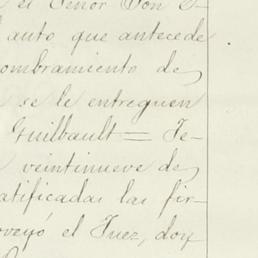 el Señor Don
auto que antecede
nombramiento de
se le entreguen
Guilbault = Fe-
veintinueve de
ratificadas las fir-
proveyó el Juez, doy